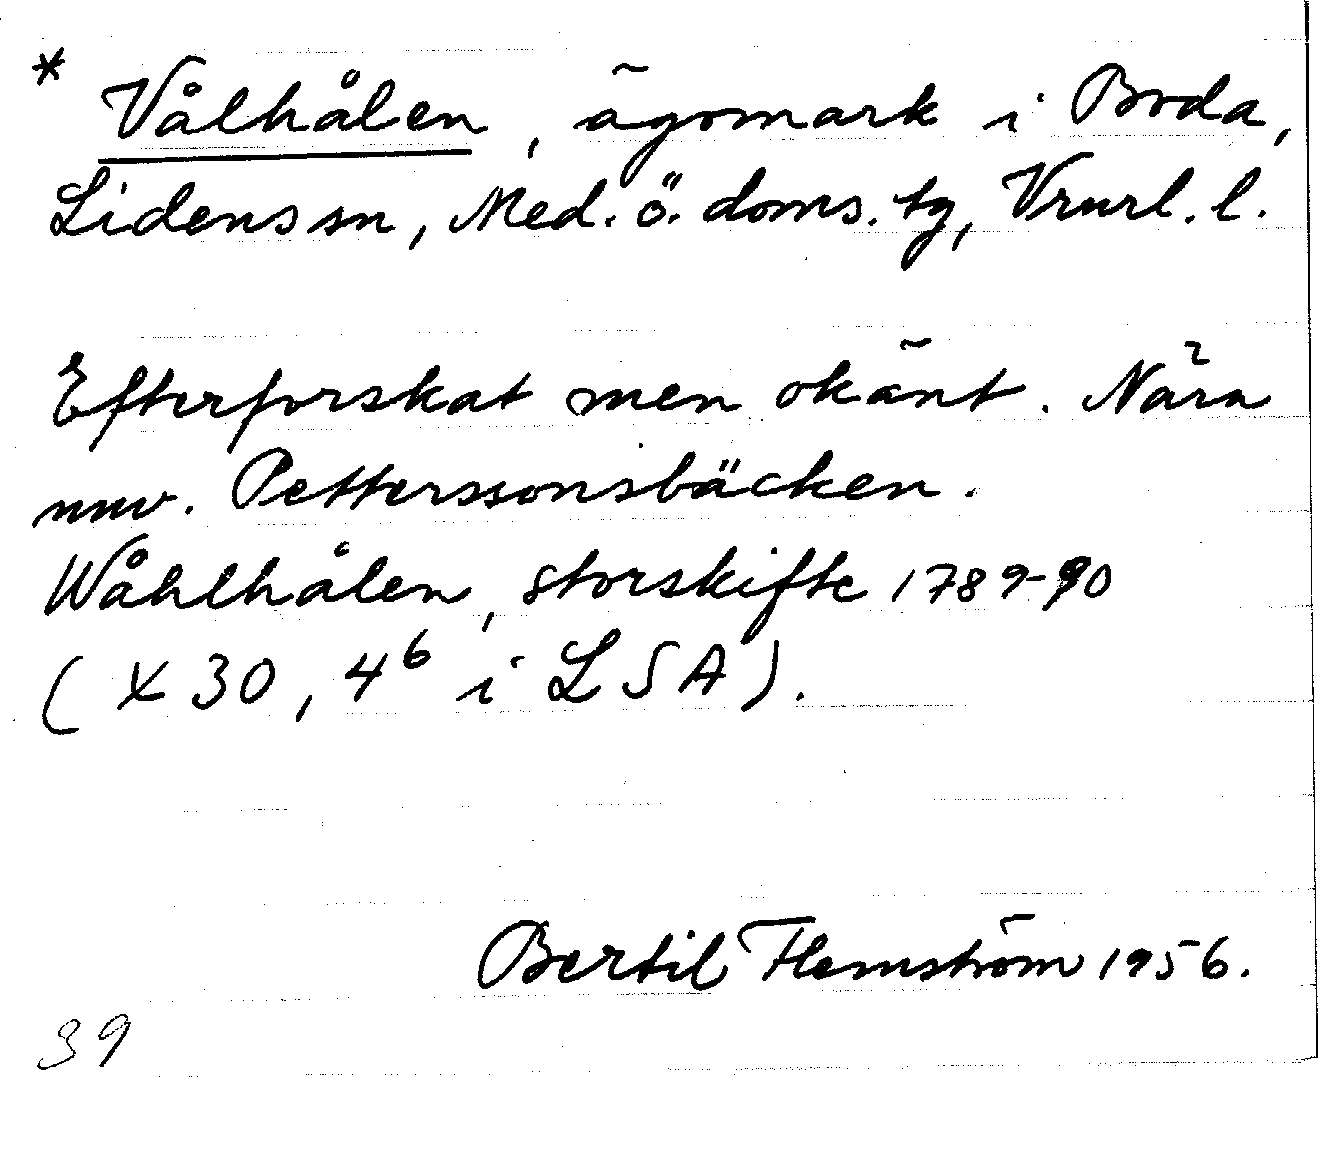 * Vålhålen, ägomark i Boda,
Lidens sn, Med. ö. doms. tg, Vrnrl. l.
Efterforskat men okänt. Nära
nuv. Petterssonsbäcken.
Wåhlhålen, storskifte 1789-90
(X 30, 4⁶ i LSA).
Bertil Flemström 1956.
39